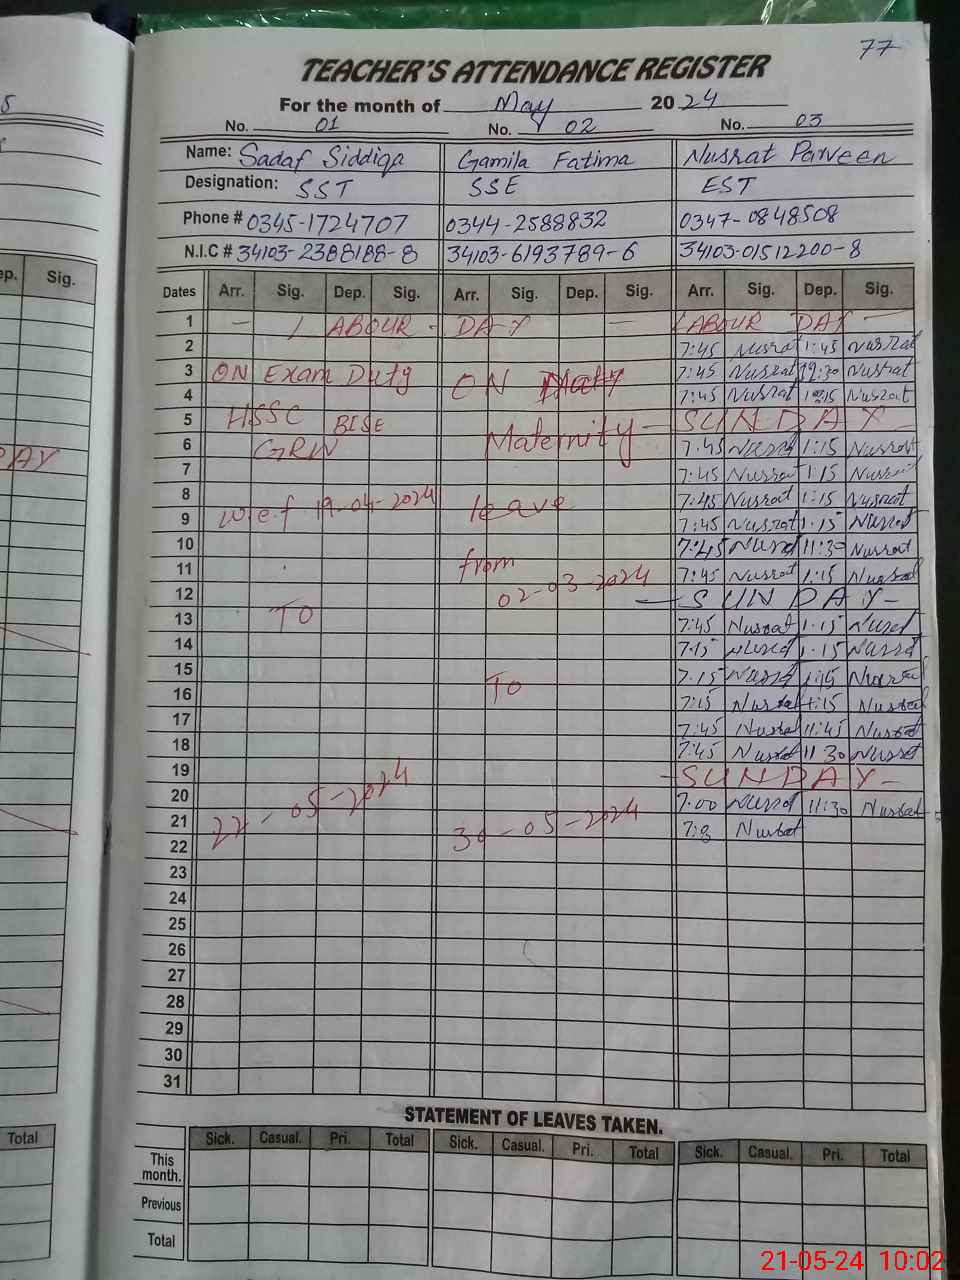 77
TEACHER'S ATTENDANCE REGISTER
For the month of May 2024
No. 01 No. 02 No. 03
Name: Sadaf Siddiqa Gamila Fatima Nusrat Parveen
Designation: SST SSE EST
Phone # 0345-1724707 0344-2588832 0347-0848508
N.I.C # 34103-2388188-8 34103-6193789-6 34103-01512200-8
Dates Arr. Sig. Dep. Sig. Arr. Sig. Dep. Sig. Arr. Sig. Dep. Sig.
1 - LABOUR - DAY - LABOUR DAY -
2 7:45 Nusrat 1:45 Nusrat
3 ON Exam Duty ON 7:45 Nusrat Nusrat
4 7:45 Nusrat Nusrat
5 HSSC BISE SUNDAY
6 GRW Maternity 7.45 Nusrat 1:15 Nusrat
7 7:45 Nusrat 1:15 Nusrat
8 7:45 Nusrat 1:15 Nusrat
9 w.e.f 19-04-2024 leave 7:45 Nusrat 1:15 Nusrat
10 7:45 Nusrat 11:30 Nusrat
11 from 7:45 Nusrat 1:15 Nusrat
12 02-03-2024 - SUNDAY -
13 TO 7:45 Nusrat 1.15 Nusrat
14 7:15 Nusrat 1.15 Nusrat
15 To 7.15 Nusrat Nusrat
16 7:15 Nusrat 1:15 Nusrat
17 7:45 Nusrat 11:45 Nusrat
18 7:45 Nusrat 11 30 Nusrat
19 - SUNDAY -
20 22-05-2024 7.00 Nusrat 11:30 Nusrat
21 30-05-2024 Nusrat
22
23
24
25
26
27
28
29
30
31
STATEMENT OF LEAVES TAKEN.
Sick. Casual. Pri. Total Sick. Casual. Pri. Total Sick. Casual. Pri. Total
This month.
Previous
Total
ep. Sig.
AY
Total
21-05-24 10:02